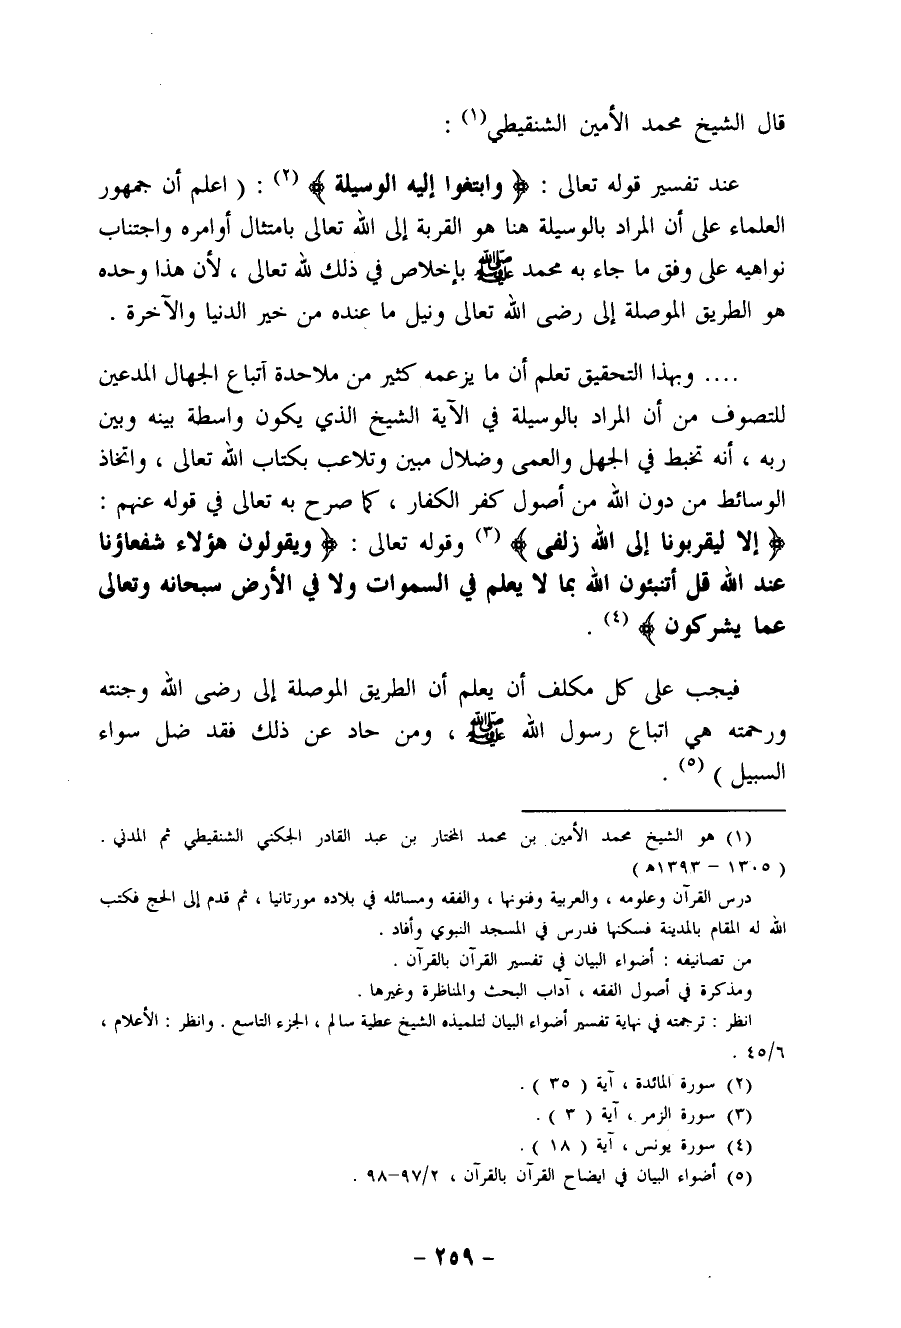 قال الشيخ محمد الأمين الشنقيطي(١) :
عند تفسير قوله تعالى : ﴿ وابتغوا إليه الوسيلة ﴾ (٢) : ( اعلم أن جمهور
العلماء على أن المراد بالوسيلة هنا هو القربة إلى الله تعالى بامتثال أوامره واجتناب
نواهيه على وفق ما جاء به محمد ﷺ بإخلاص في ذلك لله تعالى ، لأن هذا وحده
هو الطريق الموصلة إلى رضى الله تعالى ونيل ما عنده من خير الدنيا والآخرة .
.... وبهذا التحقيق تعلم أن ما يزعمه كثير من ملاحدة أتباع الجهال المدعين
للتصوف من أن المراد بالوسيلة في الآية الشيخ الذي يكون واسطة بينه وبين
ربه ، أنه تخبط في الجهل والعمى وضلال مبين وتلاعب بكتاب الله تعالى ، واتخاذ
الوسائط من دون الله من أصول كفر الكفار ، كما صرح به تعالى في قوله عنهم :
﴿ إلا ليقربونا إلى الله زلفى ﴾ (٣) وقوله تعالى : ﴿ ويقولون هؤلاء شفعاؤنا
عند الله قل أتنبئون الله بما لا يعلم في السموات ولا في الأرض سبحانه وتعالى
عما يشركون ﴾ (٤) .
فيجب على كل مكلف أن يعلم أن الطريق الموصلة إلى رضى الله وجنته
ورحمته هي اتباع رسول الله ﷺ ، ومن حاد عن ذلك فقد ضل سواء
السبيل ) (٥) .
(١) هو الشيخ محمد الأمين بن محمد المختار بن عبد القادر الجكني الشنقيطي ثم المدني .
( ١٣٠٥ – ١٣٩٣هـ )
درس القرآن وعلومه ، والعربية وفنونها ، والفقه ومسائله في بلاده مورتانيا ، ثم قدم إلى الحج فكتب
الله له المقام بالمدينة فسكنها فدرس في المسجد النبوي وأفاد .
من تصانيفه : أضواء البيان في تفسير القرآن بالقرآن .
ومذكرة في أصول الفقه ، آداب البحث والمناظرة وغيرها .
انظر : ترجمته في نهاية تفسير أضواء البيان لتلميذه الشيخ عطية سالم ، الجزء التاسع . وانظر : الأعلام ،
٤٥/٦ .
(٢) سورة المائدة ، آية ( ٣٥ ) .
(٣) سورة الزمر ، آية ( ٣ ) .
(٤) سورة يونس ، آية ( ١٨ ) .
(٥) أضواء البيان في ايضاح القرآن بالقرآن ، ٩٧/٢–٩٨ .
– ٢٥٩ –